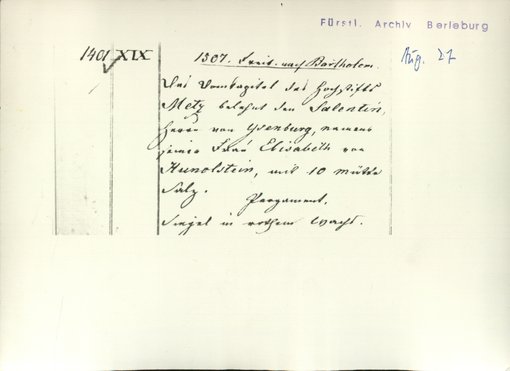 Fürstl. Archiv Berleburg
1401 XIX
1307. Freit. nach Bartholom.
Aug. 27
Das Domkapitel des Hochstifts
Metz belehnt den Salentin,
Herrn von Ysenburg, namens
seiner Frau Elisabeth von
Hunolstein, mit 10 mütte
Salz.
Pergament.
Siegel in rothem Wachs.